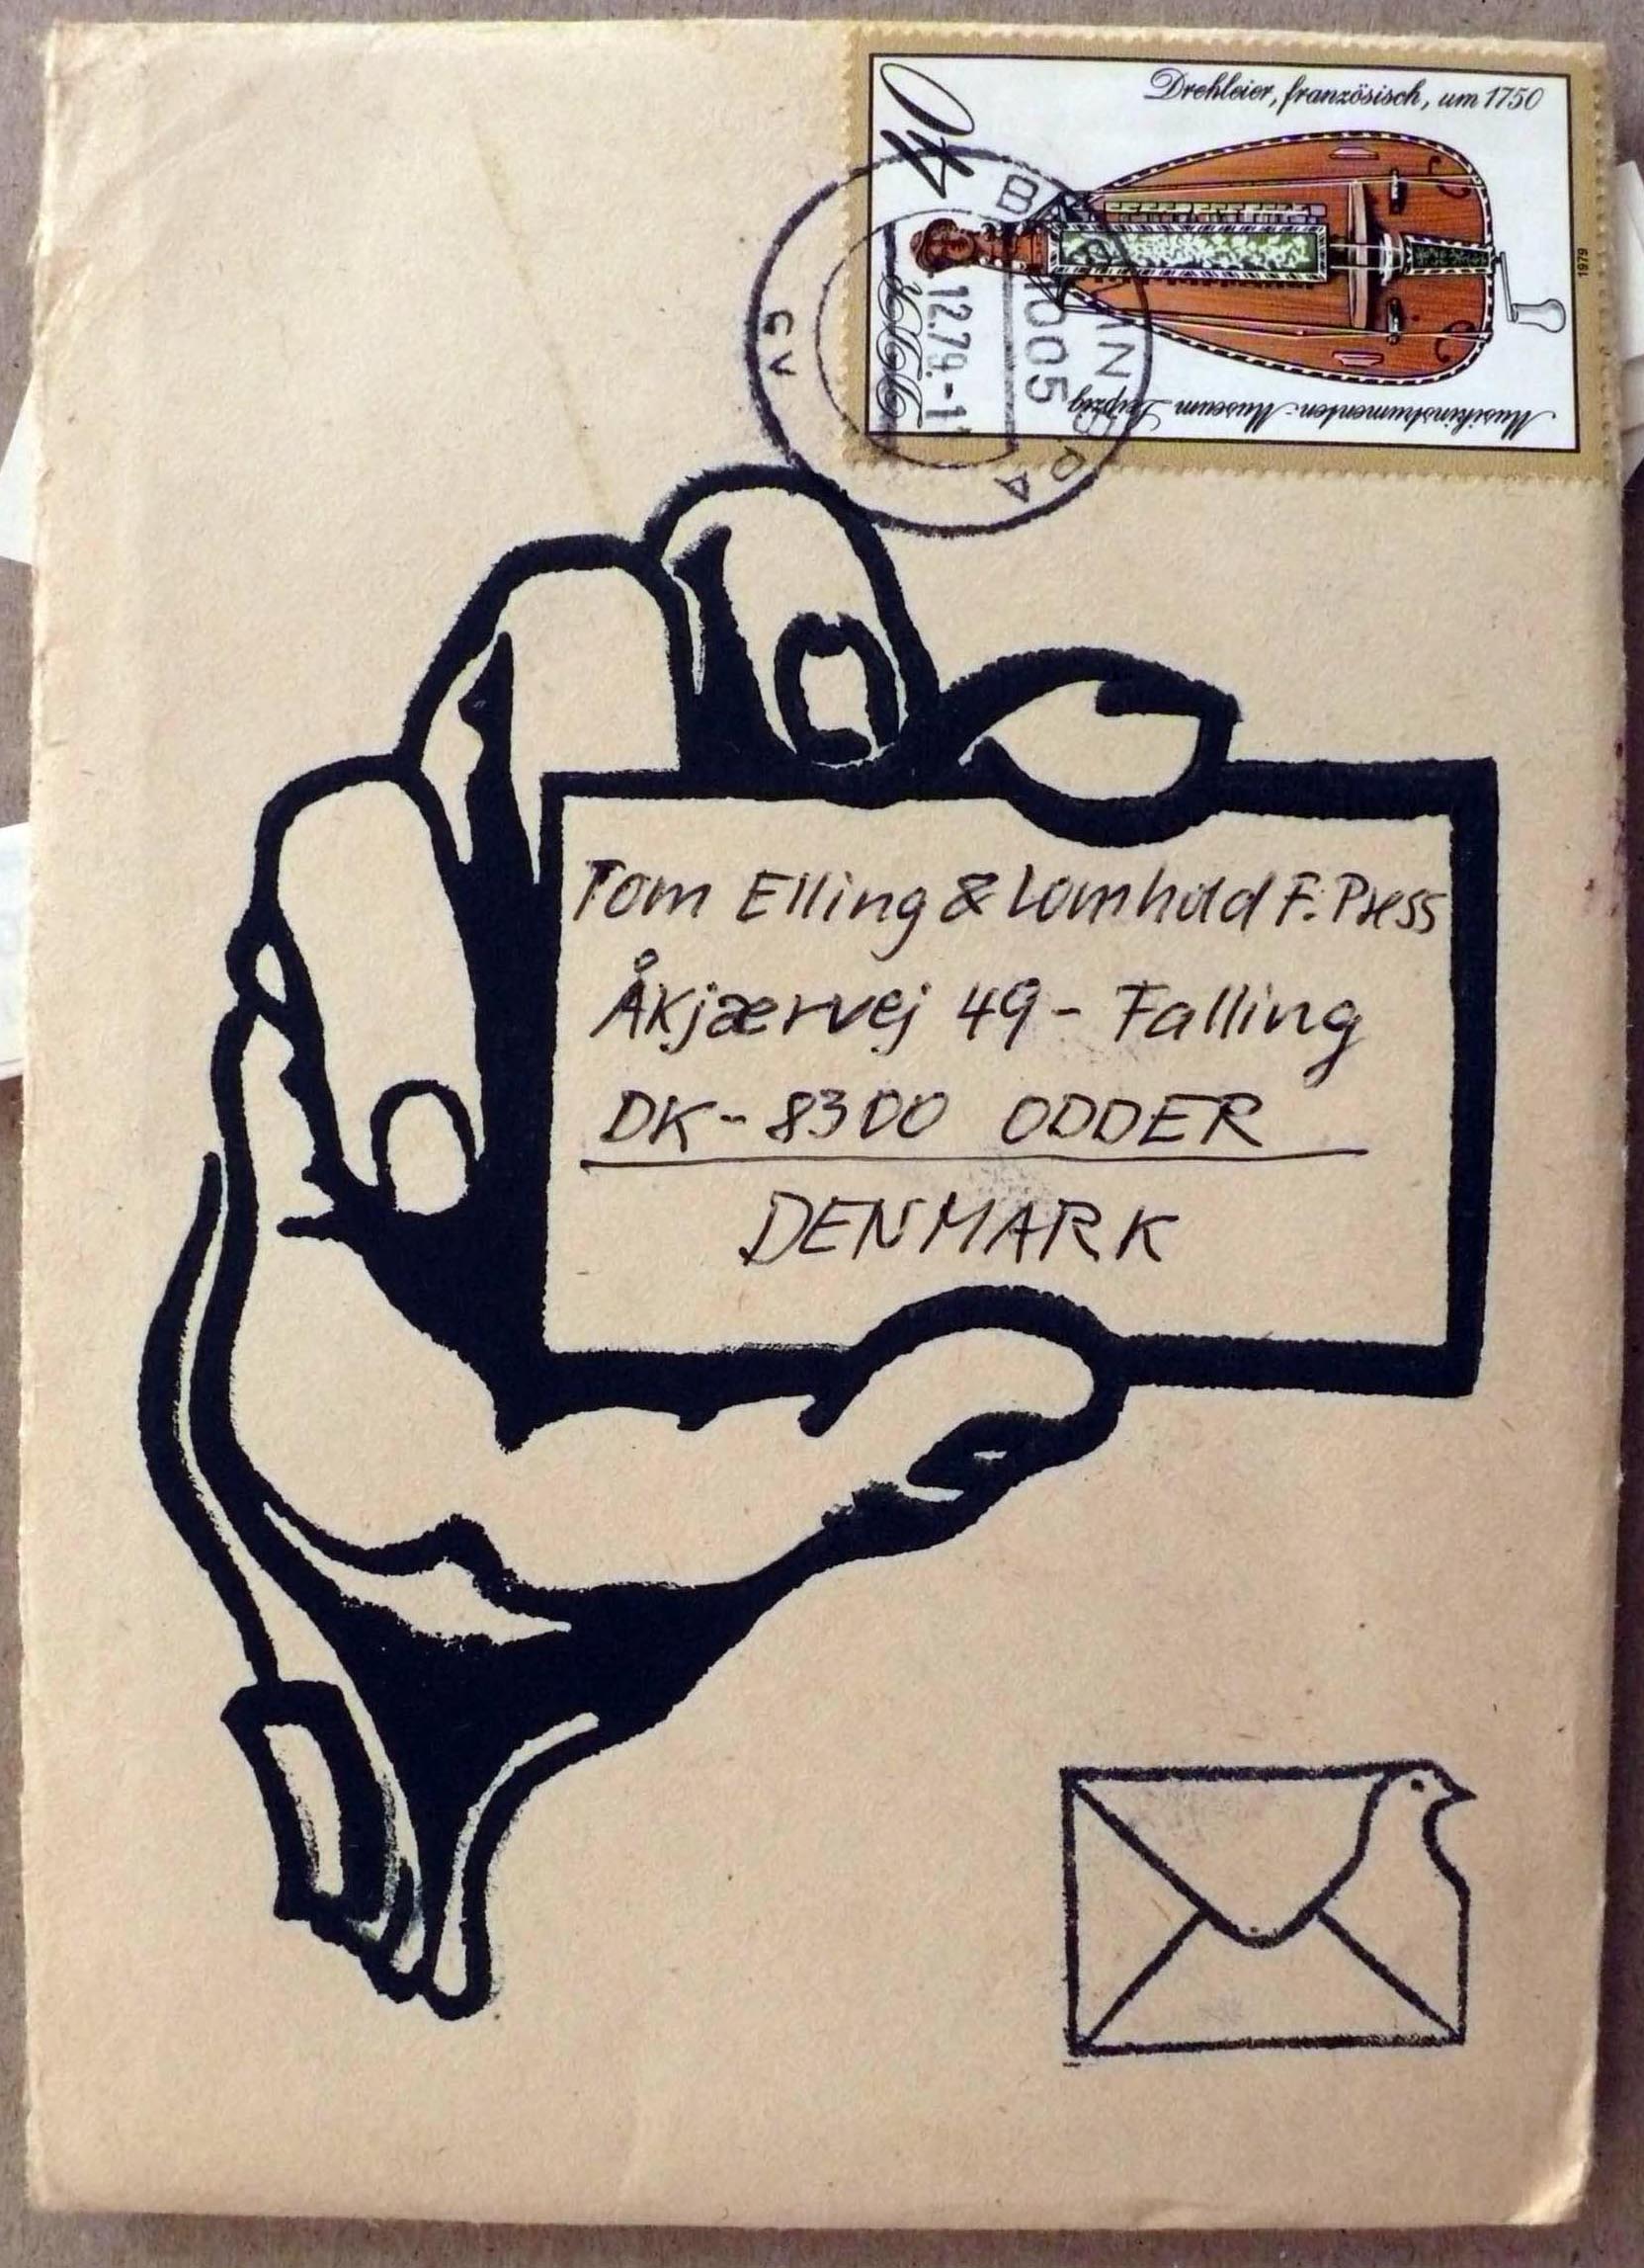 Drehleier, französisch, um 1750
40
DDR
Musikinstrumenten-Museum Leipzig
1979
12.79.-1
1005
cv
Tom Elling & Lomhold F. Press
Åkjærvej 49 - Falling
DK-8300 ODDER
DENMARK